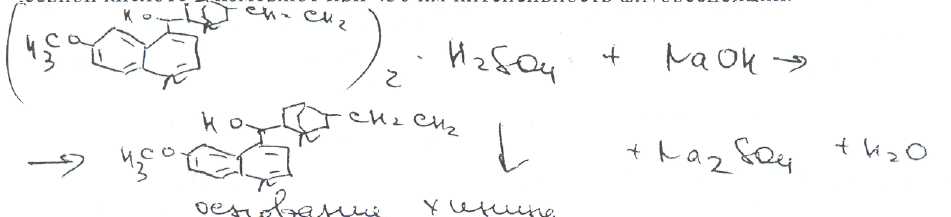 HO CH=CH2
(H3CO N N)2 · H2SO4 + NaOH →
→ H3CO HO N CH=CH2 N ↓ + Na2SO4 + H2O
основание хинина